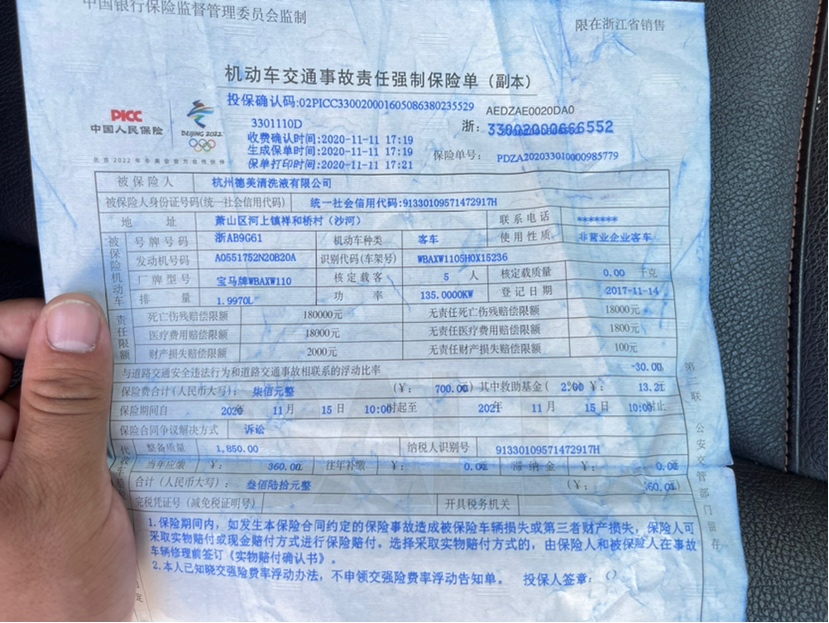 中国银行保险监督管理委员会监制
限在浙江省销售
机动车交通事故责任强制保险单（副本）
投保确认码:02PICC330020001605086380235529
AEDZAE0020DA0
PICC
中国人民保险
BEIJING 2022
3301110D
浙: 33002000866552
收费确认时间:2020-11-11 17:19
生成保单时间:2020-11-11 17:19
保单打印时间:2020-11-11 17:21
保险单号: PDZA202033010000985779
北京2022年冬奥会官方合作伙伴
被保险人 杭州德美清洗液有限公司
被保险人身份证号码(统一社会信用代码) 统一社会信用代码:91330109571472917H
地 址 萧山区河上镇祥和桥村（沙河） 联系电话 *******
被保险机动车
号牌号码 浙AB9G61 机动车种类 客车 使用性质 非营业企业客车
发动机号码 A0551752N20B20A 识别代码(车架号) WBAXW1105H0X15236
厂牌型号 宝马牌WBAXW110 核定载客 5 人 核定载质量 0.00 千克
排 量 1.9970L 功 率 135.0000KW 登记日期 2017-11-14
责任限额
死亡伤残赔偿限额 180000元 无责任死亡伤残赔偿限额 18000元
医疗费用赔偿限额 18000元 无责任医疗费用赔偿限额 1800元
财产损失赔偿限额 2000元 无责任财产损失赔偿限额 100元
与道路交通安全违法行为和道路交通事故相联系的浮动比率 -30.00
保险费合计(人民币大写): 柒佰元整 (￥: 700.00) 其中救助基金( 2.00 ￥: 13.21
保险期间自 2020年 11月 15日 10:00时起至 2021年 11月 15日 10:00时止
保险合同争议解决方式 诉讼
整备质量 1,850.00 纳税人识别号 91330109571472917H
当年应缴 ￥: 360.00 往年补缴 ￥: 0.00 滞纳金 ￥: 0.00
合计(人民币大写): 叁佰陆拾元整 (￥:
完税凭证号(减免税证明号) 开具税务机关
1.保险期间内，如发生本保险合同约定的保险事故造成被保险车辆损失或第三者财产损失，保险人可
采取实物赔付或现金赔付方式进行保险赔付。选择采取实物赔付方式的，由保险人和被保险人在事故
车辆修理前签订《实物赔付确认书》。
2.本人已知晓交强险费率浮动办法，不申领交强险费率浮动告知单。 投保人签章:（）
第二联 公安交管部门留存